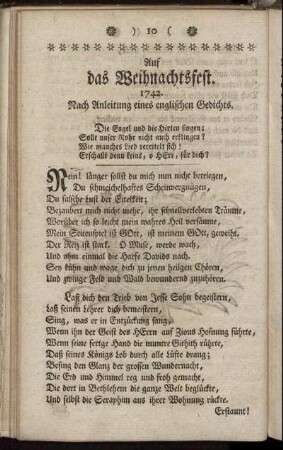 ) 10 (
Auf
das Weihnachtsfest.
1742.
Nach Anleitung eines englischen Gedichts.
Die Engel und die Hirten singen;
Sollt unser Rohr nicht auch erklingen?
Wie manches Lied vereitelt sich!
Erschallt denn keins, o HErr, für dich?
Nein! länger sollst du mich nun nicht betriegen,
Du schmeichelhaftes Scheinvergnügen,
Du falsche Lust der Eitelkeit;
Bezaubert mich nicht mehr, ihr schnellverlebten Träume,
Worüber ich so leicht mein wahres Heil versäume,
Mein Seitenspiel ist GOtt, ist meinem GOtt, geweiht.
Der Reitz ist stark. O Muse, werde wach,
Und ahm einmal die Harfe Davids nach.
Sey kühn und wage dich zu jenen heilgen Chören,
Und zwinge Feld und Wald bewundernd zuzuhören.
Laß dich den Trieb von Jesse Sohn begeistern,
Laß seinen Lehrer dich bemeistern,
Sing, was er in Entzückung sang,
Wenn ihn der Geist des HErrn auf Zions Hofnung führte,
Wenn seine fertge Hand die muntre Githith rührte,
Daß seines Königs Lob durch alle Lüfte drang;
Besing den Glanz der grossen Wundernacht,
Die Erd und Himmel reg und froh gemacht,
Die dort in Bethlehem die ganze Welt beglückte,
Und selbst die Seraphim aus ihrer Wohnung rückte.
Erstaunt!